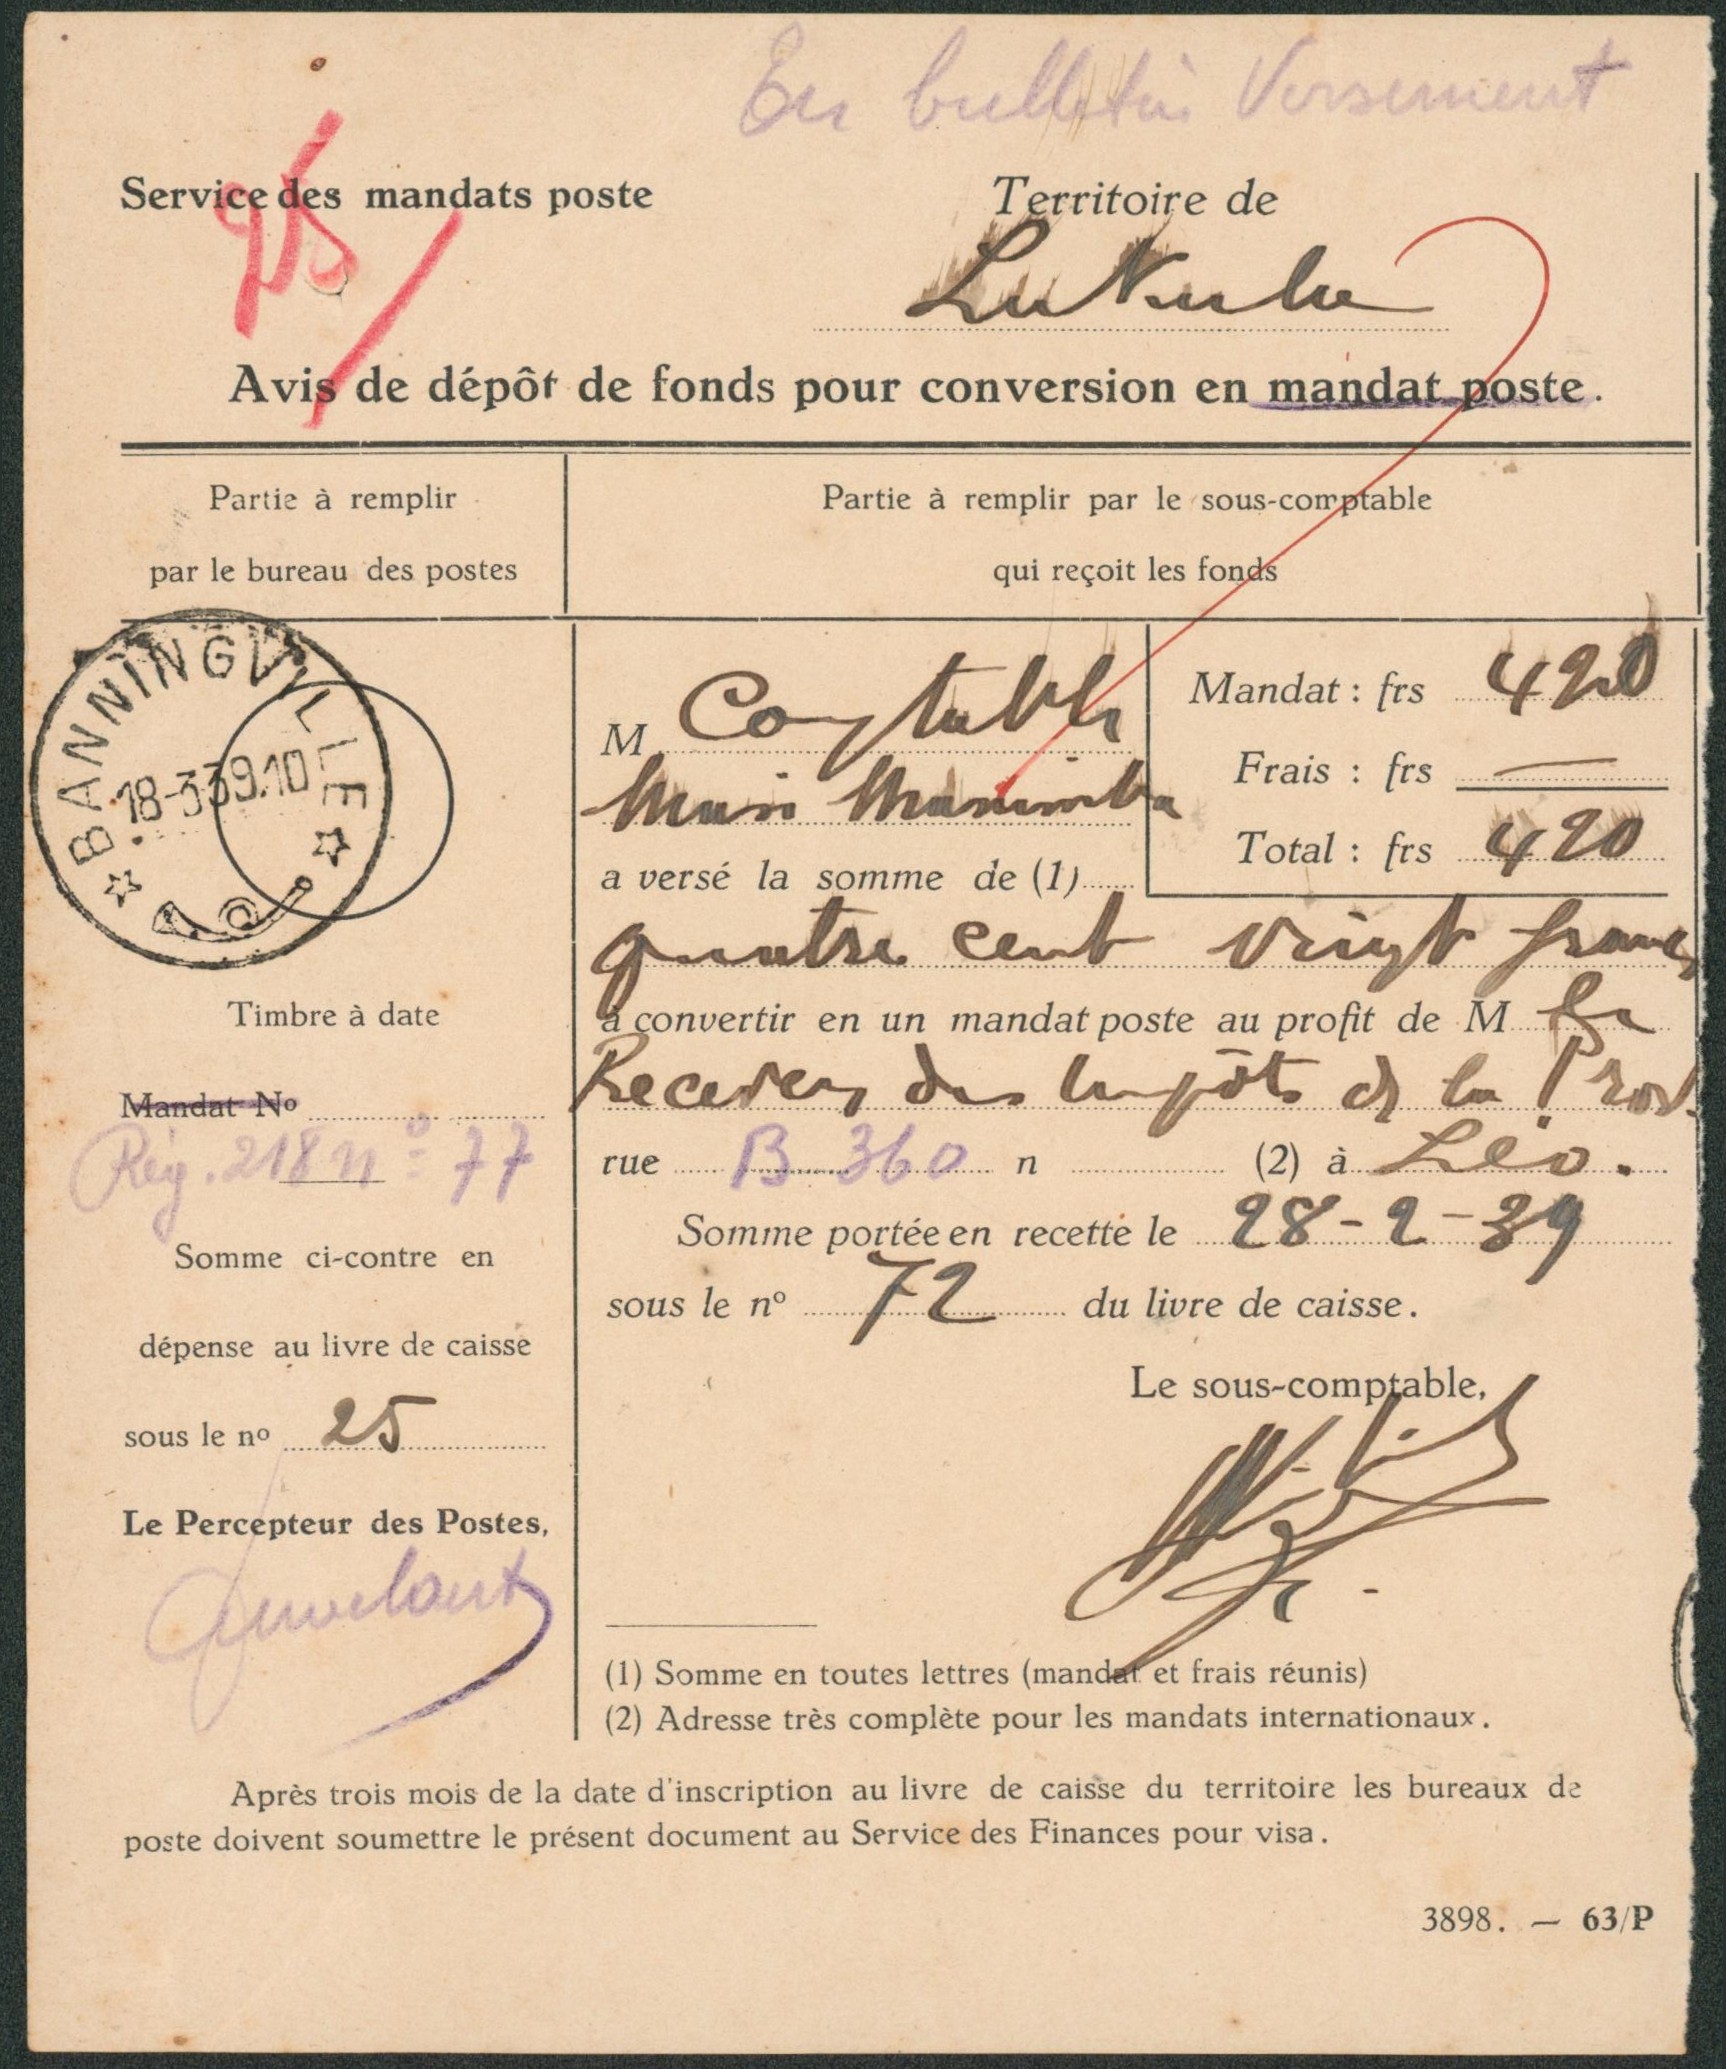 En bulletin Versement
25
Service des mandats poste
Territoire de
Avis de dépôt de fonds pour conversion en mandat poste.
Partie à remplir
par le bureau des postes
Partie à remplir par le sous-comptable
qui reçoit les fonds
BANNINGVILLE
18-3 39.10
M Comptable
Masi Manimba
Mandat : frs 420
Frais : frs —
Total : frs 420
a versé la somme de (1)
quatre cent vingt francs
à convertir en un mandat poste au profit de M
Receveur des Impôts de la Prov.
rue B 360 n (2) à Léo.
Somme portée en recette le 28-2-39
sous le nº 72 du livre de caisse.
Le sous-comptable,
Timbre à date
Mandat Nº
Rég. 218 nº 77
Somme ci-contre en
dépense au livre de caisse
sous le nº 25
Le Percepteur des Postes,
(1) Somme en toutes lettres (mandat et frais réunis)
(2) Adresse très complète pour les mandats internationaux.
Après trois mois de la date d'inscription au livre de caisse du territoire les bureaux de
poste doivent soumettre le présent document au Service des Finances pour visa.
3898. — 63/P